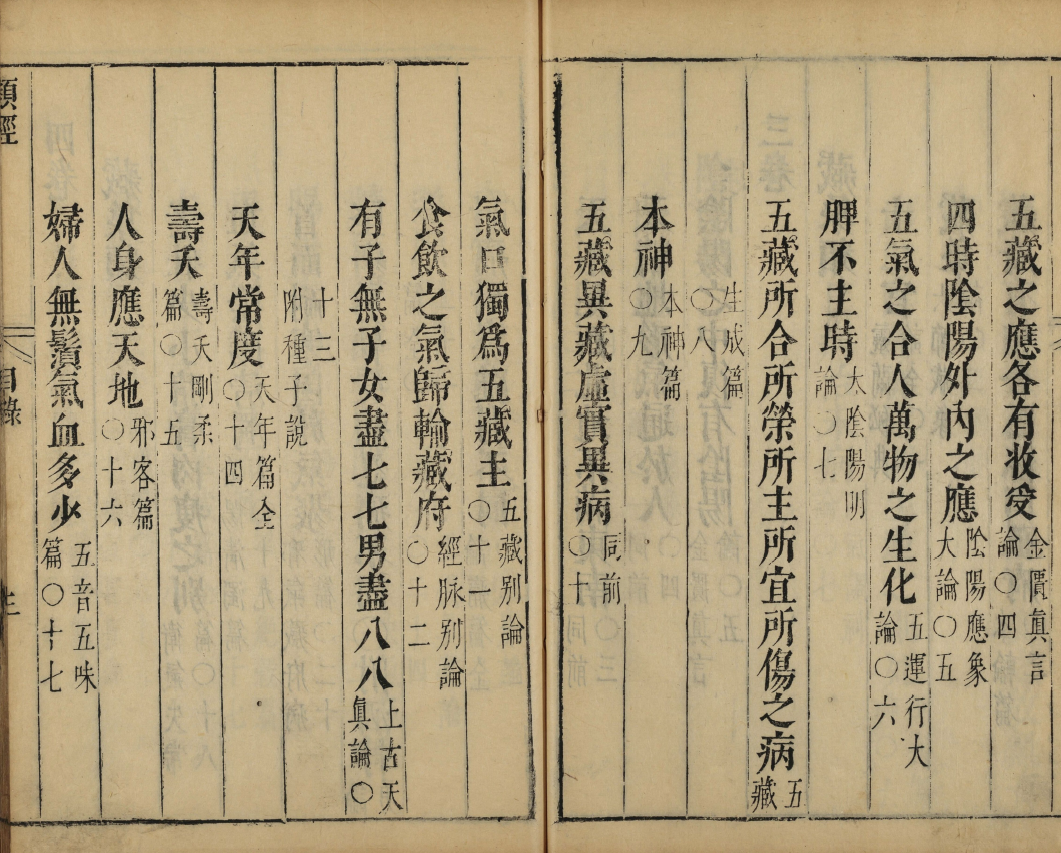 五藏之應各有收受金匱眞言論〇四
四時陰陽外內之應陰陽應象大論〇五
五氣之合人萬物之生化五運行大論〇六
脾不主時太陰陽明論〇七
五藏所合所榮所主所宜所傷之病五藏
生成篇〇八
本神本神篇〇九
五藏異藏虛實異病同前〇十
氣口獨爲五藏主五藏别論〇十一
食飲之氣歸輸藏府經脉别論〇十二
有子無子女盡七七男盡八八上古天眞論〇
十三附種子說
天年常度天年篇全〇十四
壽夭壽夭剛柔篇〇十五
人身應天地邪客篇〇十六
婦人無鬚氣血多少五音五味篇〇十七
類經
目錄